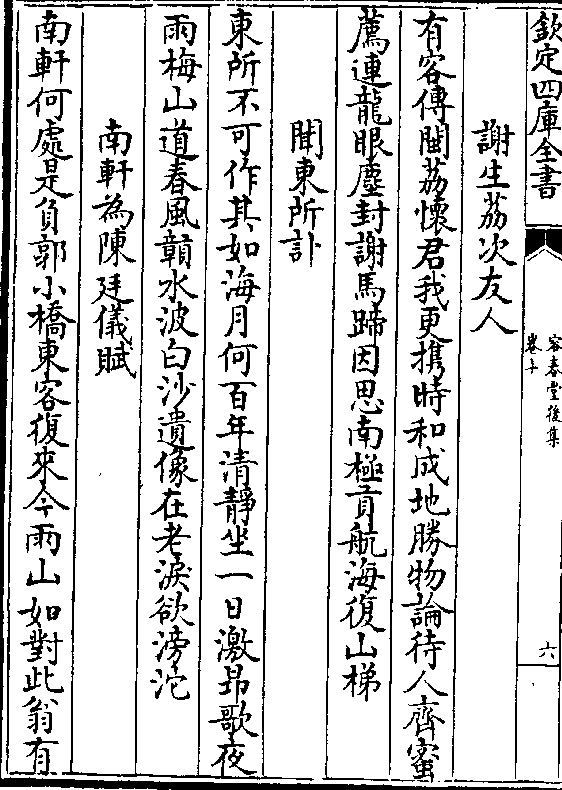 欽定四庫全書
容春堂後集
卷十
六
謝生荔次友人
有客傳閩荔懷君我更携時和成地勝物論待人齊蜜
薦連龍眼塵封謝馬蹄因思南極貢航海復山梯
聞東所訃
東所不可作其如海月何百年清靜坐一日激昻歌夜
雨梅山道春風贑水波白沙遺像在老淚欲滂沱
南軒為陳廷儀賦
南軒何處是負郭小橋東客復來今雨山如對此翁有